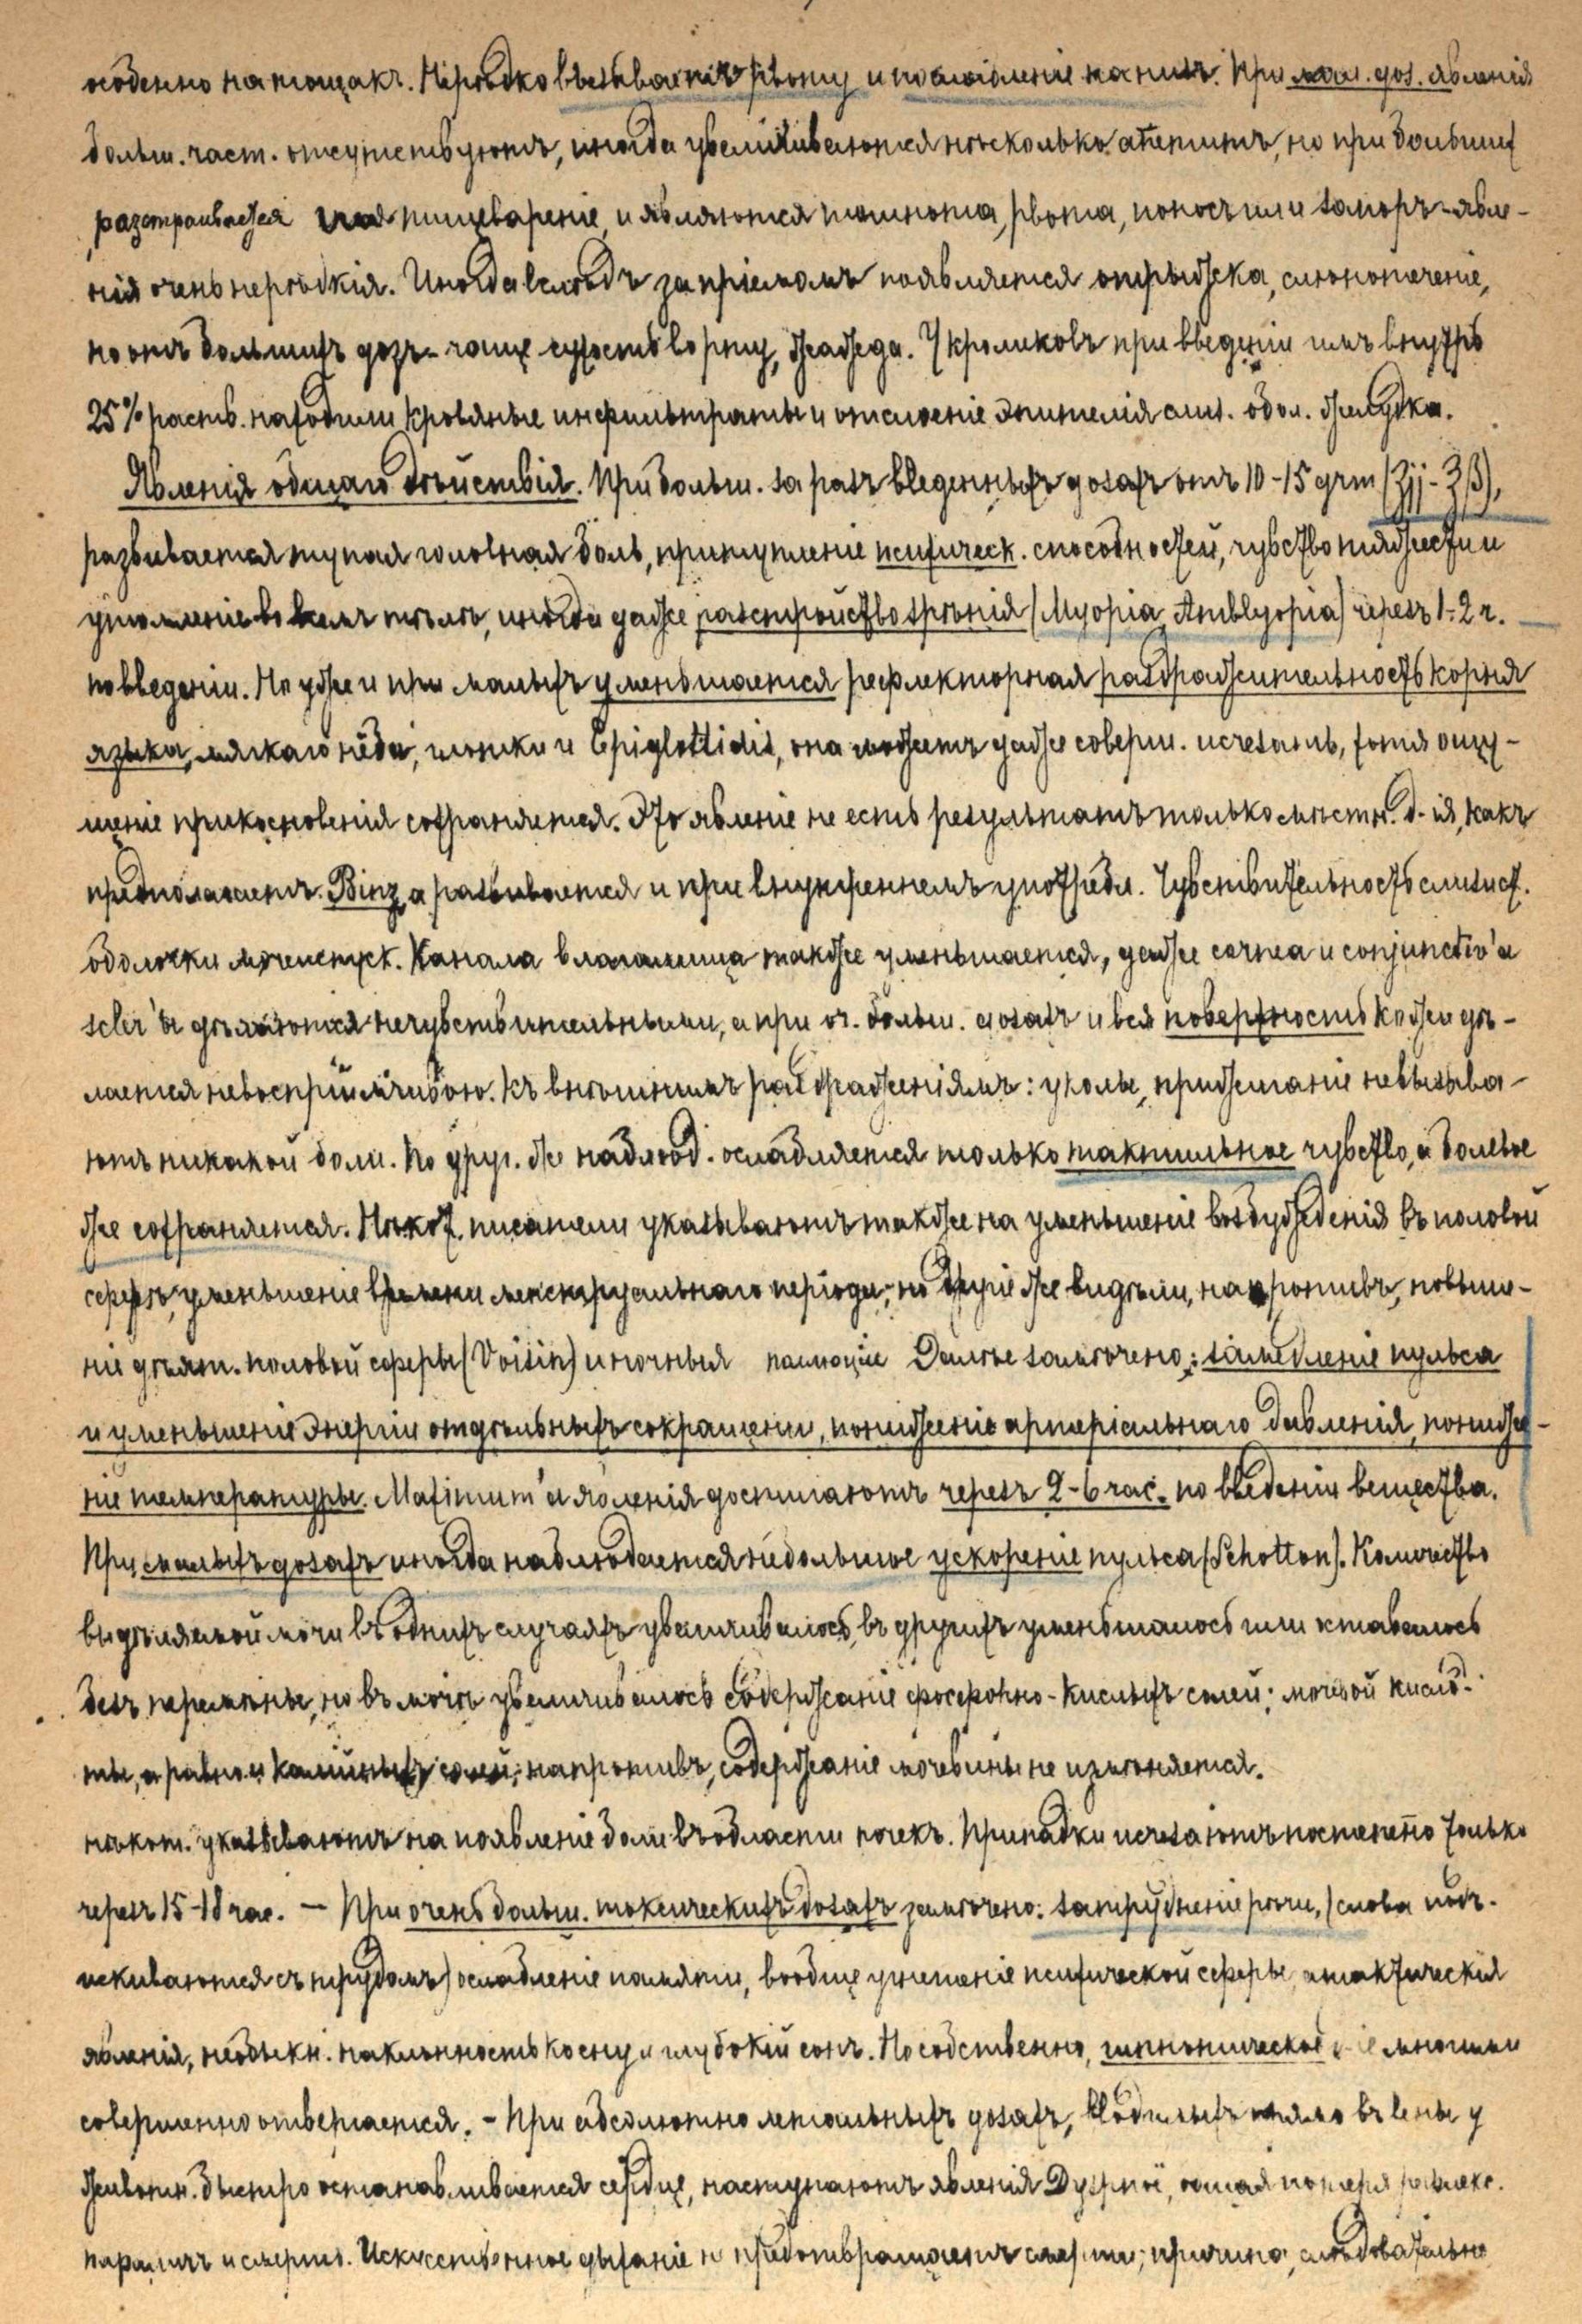 особенно натощакъ. Нерѣдко вызываетъ рвоту и послабленіе на низъ. При мал. доз. явленія
больш. част. отсутствуютъ, иногда увеличивается нѣсколько апетитъ, но при большихъ
разстраивается пищевареніе, и являются тошнота, рвота, поносъ или запоръ - явле-
нія очень нерѣдкія. Иногда вслѣдъ за пріемомъ появляется отрыжка, слюнотеченіе,
но отъ большихъ дозъ - чаще сухость во рту, жажда. У кроликовъ при введеніи имъ внутрь
25% раств. находили кровяные инфильтраты и отслоеніе эпителія слиз. обол. желудка.
Явленія общаго дѣйствія. При больш. за разъ введенныхъ дозахъ отъ 10-15 grm (ʒij - ℥β),
развивается тупая головная боль, притупленіе психическ. способностей, чувство тяжести и
утомленіе во всемъ тѣлѣ, иногда даже разстройство зрѣнія (Myopia, Amblyopia) черезъ 1-2 ч.
по введеніи. Но уже и при малыхъ уменьшается рефлекторная раздражительность корня
языка, мягкаго нёба, глотки и Epiglottidis, она можетъ даже соверш. исчезать, хотя ощу-
щеніе прикосновенія сохраняется. Это явленіе не есть результатъ только мѣстн. д-ія, какъ
предполагаетъ Binz, а развивается и при внутреннемъ употребл. Чувствительность слизист.
оболочки мочеиспуск. канала влагалища также уменьшается, даже cornea и conjunctiv'a
scler'ы дѣлаются нечувствительными, а при оч. больш. дозахъ и вся поверхность кожи дѣ-
лается невоспріимчивою къ внѣшнимъ раздраженіямъ: уколы, прижиганіе не вызыва-
ютъ никакой боли. По друг. же наблюд. ослабляется только тактильное чувство, а болевое
же сохраняется. Нѣкот. писатели указываютъ также на уменьшеніе возбужденія въ половой
сферѣ, уменьшеніе времени менструальнаго періода; но другіе же видѣли, напротивъ, повыше-
ніе дѣят. половой сферы (Voisin) и ночныя поллюціи Далѣе замѣчено: замедленіе пульса
и уменьшеніе энергіи отдѣльныхъ сокращеніи, пониженіе артеріальнаго давленія, пониже-
ніе температуры. Maximum'а явленія достигаютъ черезъ 2-6 час. по введеніи вещества.
При малыхъ дозахъ иногда наблюдается небольшое ускореніе пульса (Schotten). Количество
выдѣляемой мочи въ однихъ случаяхъ увеличивалось, въ другихъ уменьшалось или оставалось
безъ перемѣны, но въ мочѣ увеличивалось содержаніе фосфорно-кислыхъ солей; мочевой кисло-
ты, а равно и калійныхъ солей; напротивъ, содержаніе мочевины не измѣняется.
нѣкот. указываютъ на появленіе боли въ области почекъ. Припадки исчезаютъ постепенно только
черезъ 15-18 час. — При очень больш. токсическихъ дозахъ замѣчено: затрудненіе рѣчи, (слова подъ-
искиваются съ трудомъ) ослабленіе памяти, вообще угнетеніе психической сферы, атактическія
явленія, необыкн. наклонность ко сну и глубокій сонъ. Но собственно, гипнотическое многими
совершенно отвергается. - При абсолютно летальныхъ дозахъ, вводимыхъ прямо въ вены у
животн. быстро останавливается сердце, наступаютъ явленія Dyspnoë, общая потеря рефлекс.
параличъ и смерть. Искусственное дыханіе не предотвращаетъ смерти; причина, слѣдовательно